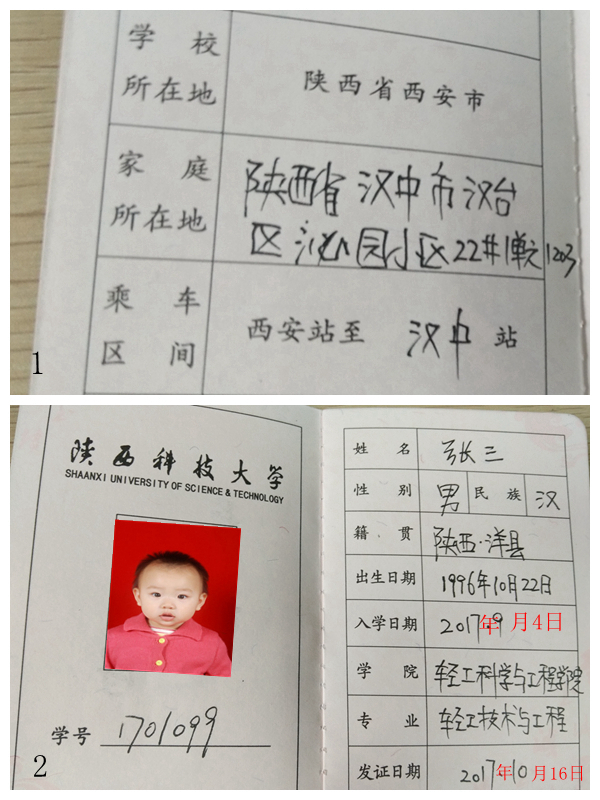 学 校
所在地
陕西省西安市
家 庭
所在地
陕西省 汉中市汉台
区 沁园小区22#1单元1203
乘 车
区 间
西安站至 汉中 站
1
陕西科技大学
SHAANXI UNIVERSITY OF SCIENCE & TECHNOLOGY
学号 1701099
2
姓 名 张三
性 别 男 民 族 汉
籍 贯 陕西·洋县
出生日期 1996年10月22日
入学日期 2017.9 年 月4日
学 院 轻工科学与工程学院
专 业 轻工技术与工程
发证日期 2017.10 年 月16日